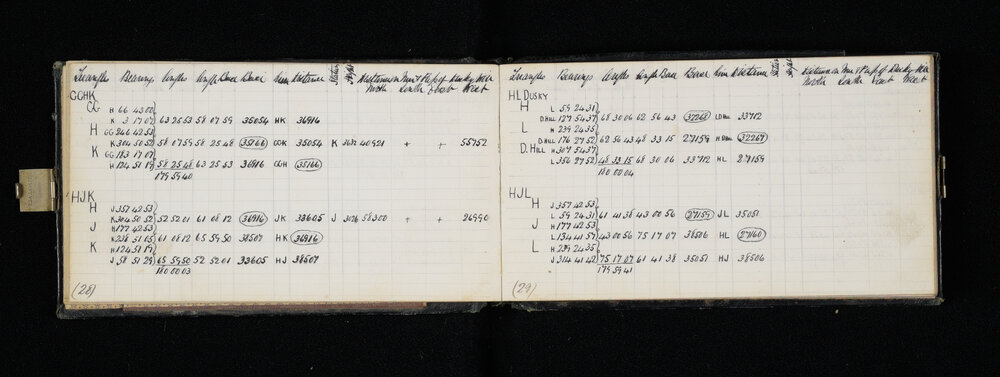 Triangles Bearings Angles Angle Base Base Line Distance Station Height Distances on Mer & Perp of Dusky
North South East West
GGHK
GG H 66 43 00
K 3 17 07 63 25 53 58 07 59 35054 HK 36916
H GG 246 42 53
K 304 50 52 58 07 59 58 25 48 35166 GGK 35054 K 3682 40921 + + 55752
K GG 183 17 07
H 124 51 19 58 25 48 63 25 53 36916 GGH 35166
179 59 40
HJK
H J 357 42 53
K 304 50 52 52 52 01 61 08 12 36916 JK 33605 J 3026 58300 + + 26990
J H 177 42 53
K 238 51 05 61 08 12 65 59 50 38507 HK 36916
K H 124 51 19
J 58 51 29 65 59 50 52 52 01 33605 HJ 38507
180 00 03
(28)
Triangles Bearings Angles Angle Base Base Line Distance Station Height Distances on Mer & Perp of Dusky
North South East West
HL DUSKY
H L 59 24 31
D.HILL 127 54 37 68 30 06 62 56 43 32268 L D.HILL 33712
L H 239 24 35
D.HILL 176 27 52 62 56 43 48 33 15 27159 H D.HILL 32267
D. HILL H 307 54 37
L 356 27 52 48 33 15 68 30 06 33712 HL 27159
180 00 04
HJL
H J 357 42 53
L 59 24 31 61 41 38 43 00 56 27159 JL 35051
J H 177 42 53
L 134 41 57 43 00 56 75 17 07 38506 HL 27160
L H 239 24 35
J 314 41 42 75 17 07 61 41 38 35051 HJ 38506
179 59 41
(29)